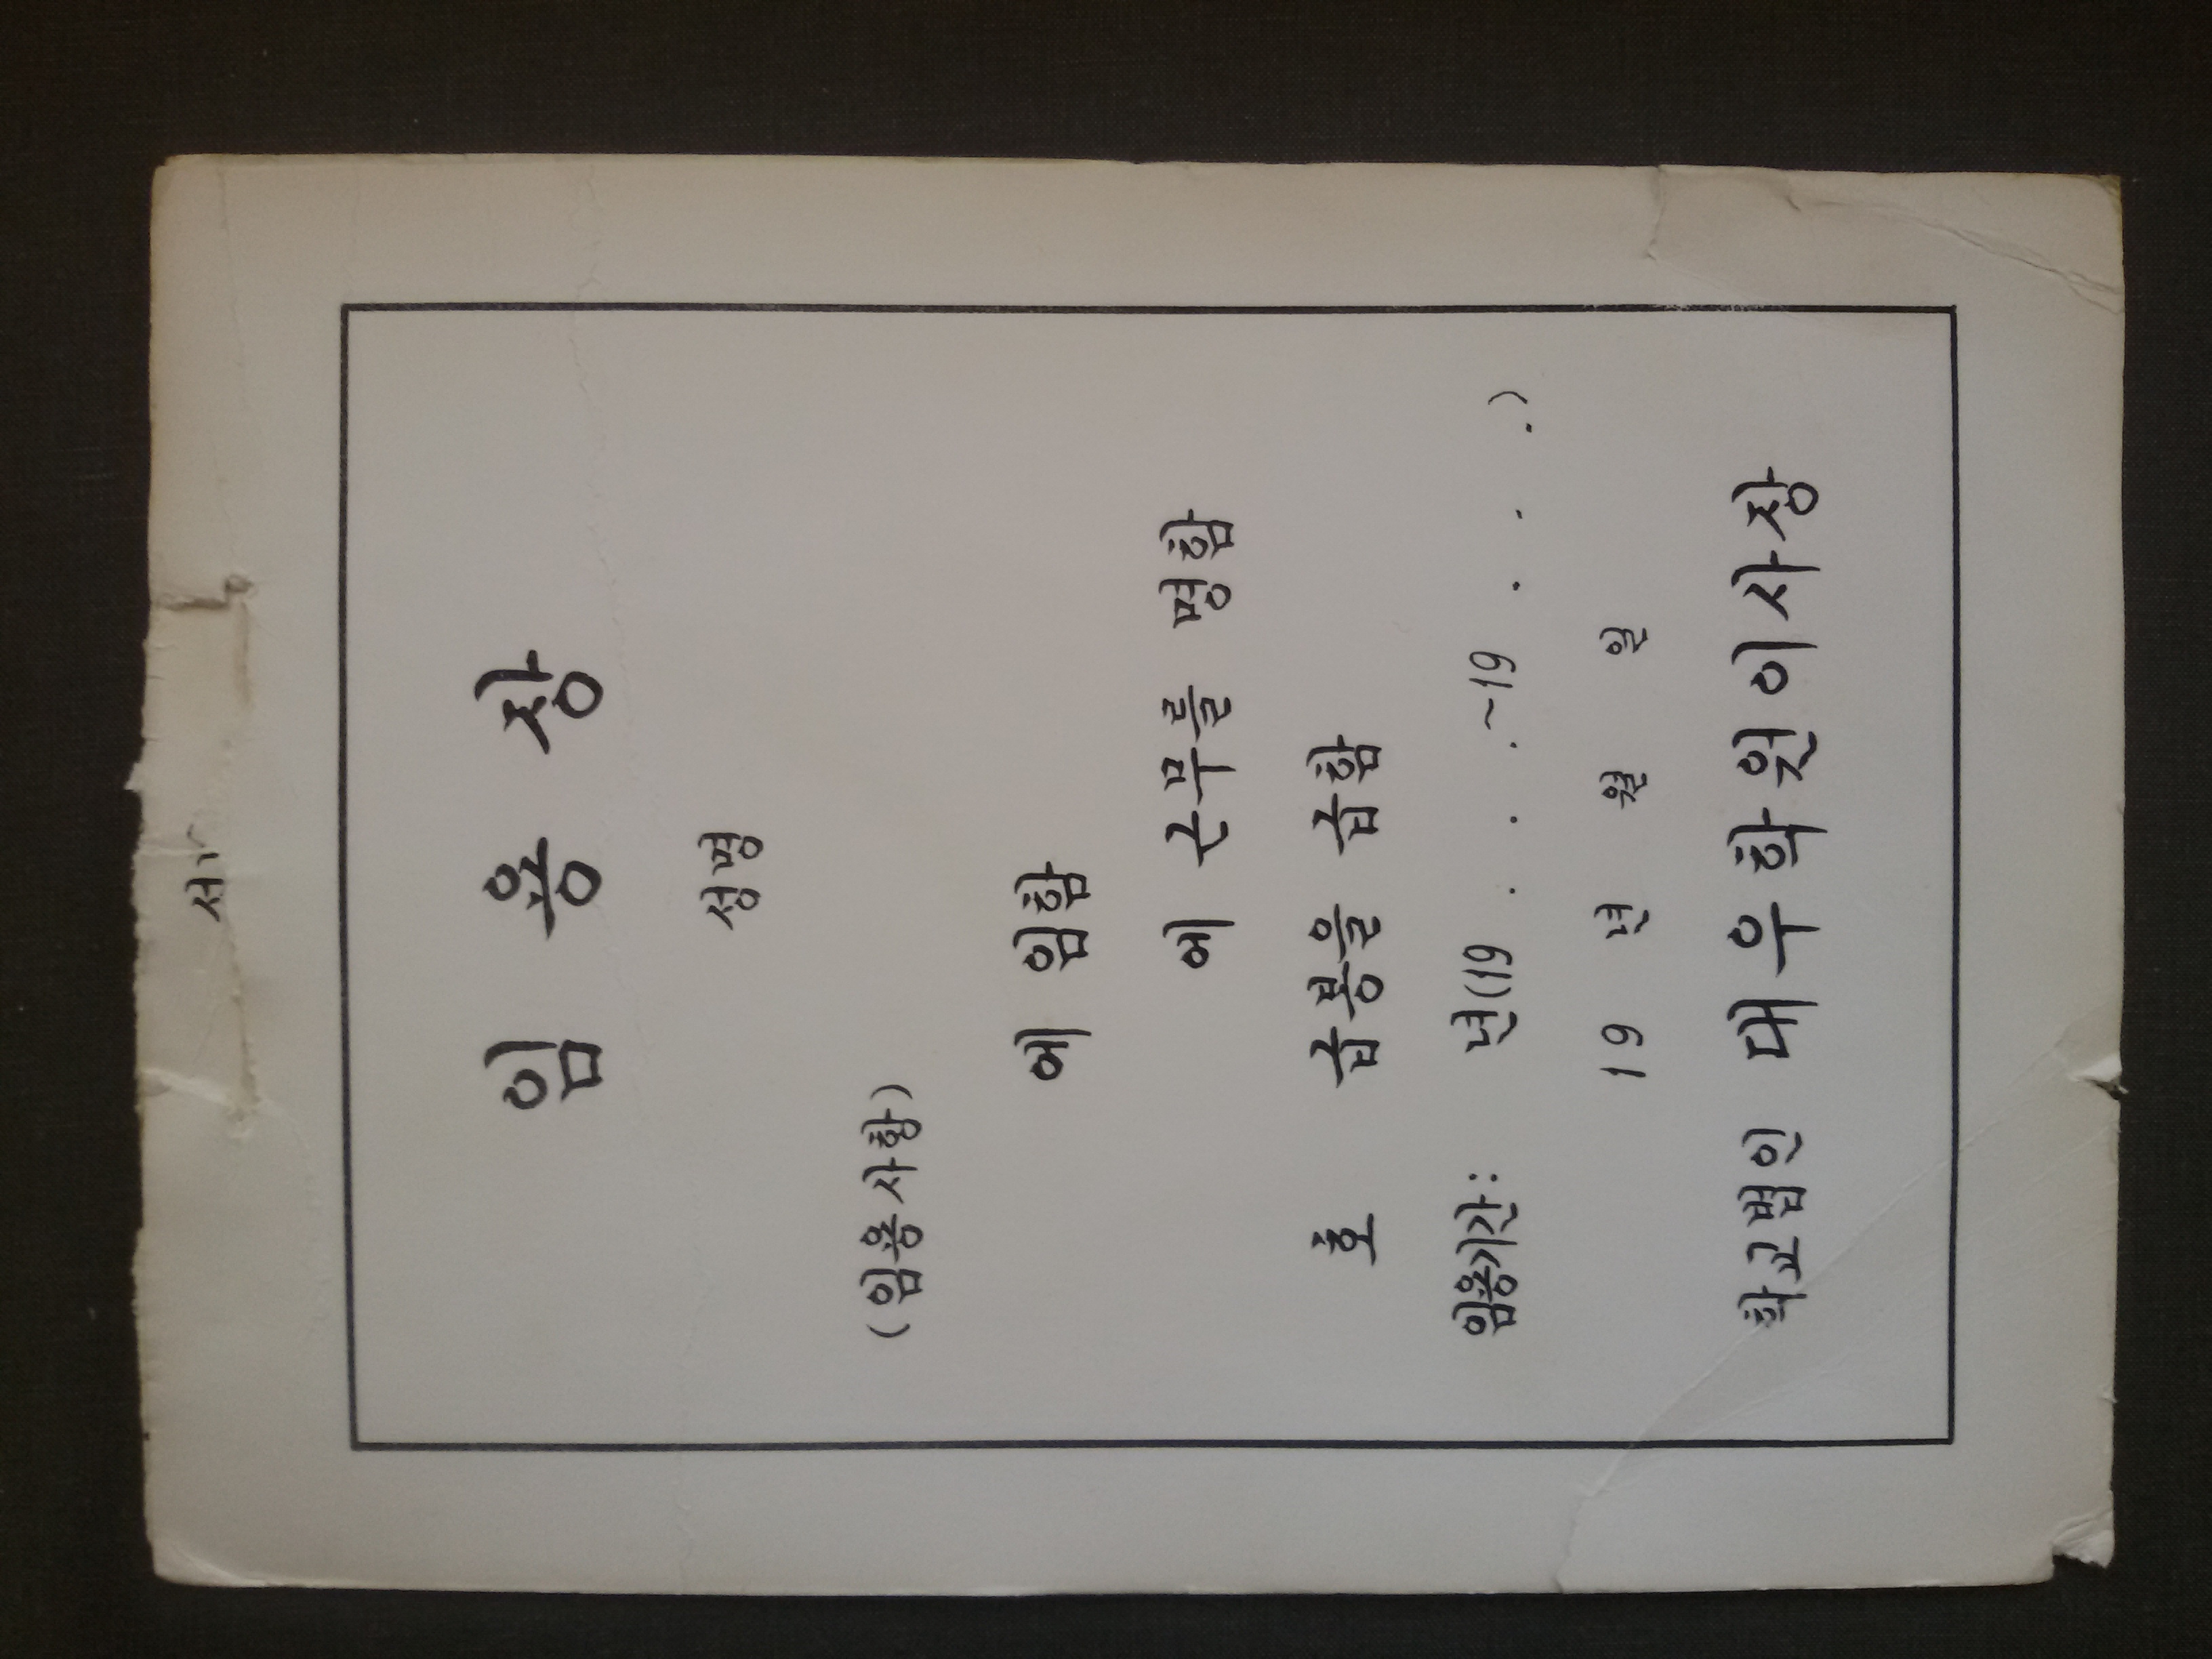 임 용 장
성명
(임용사항)
에 임함
에 근무를 명함
호 급봉을 급함
임용기간: 년(19 . . . ~19 . . . )
19 년 월 일
학교법인 대우학원이사장